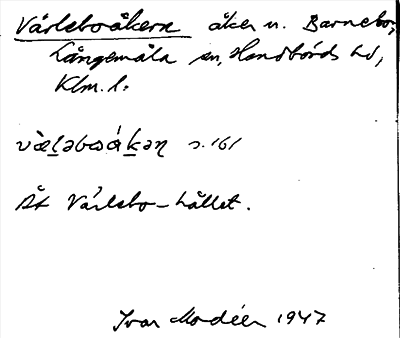 Värleboåkern åker u. Barnebo,
Långemåla sn, Handbörds hd,
Klm. l.
s. 161
Åt Värlebo-hållet.
Ivar Modéer 1947